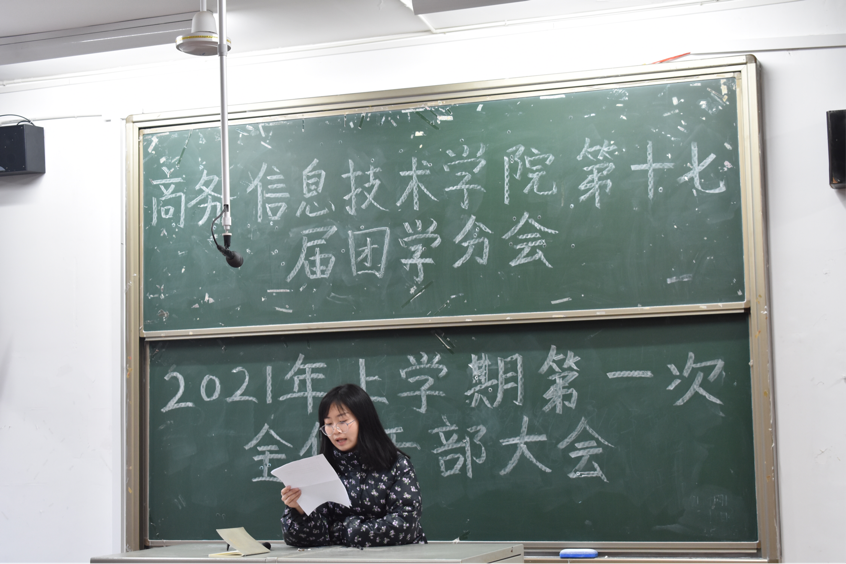 商务信息技术学院第十七
届团学分会
2021年上学期第一次
全体干部大会